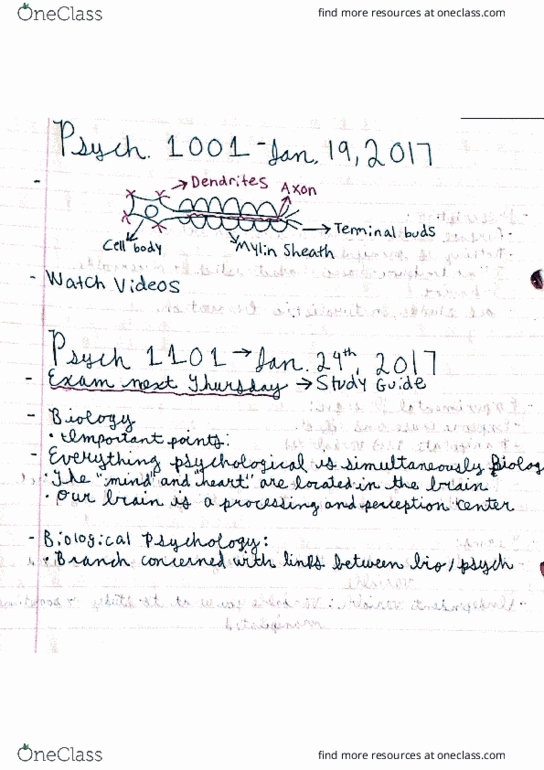 OneClass
find more resources at oneclass.com
Psych. 1001 - Jan. 19, 2017
- → Dendrites Axon
→ Terminal buds
Cell body Mylin Sheath
- Watch Videos
Psych 1101 → Jan. 24th, 2017
- Exam next Thursday → Study Guide
- Biology
• Important points:
- Everything psychological is simultaneously Biolog
• The "mind" and "heart" are located in the brain
• Our brain is a processing and perception center
- Biological Psychology:
• Branch concerned with links between bio/psych
OneClass
find more resources at oneclass.com